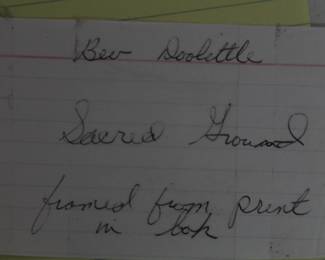 Bev Doolittle
Sacred Ground
framed from print
in book